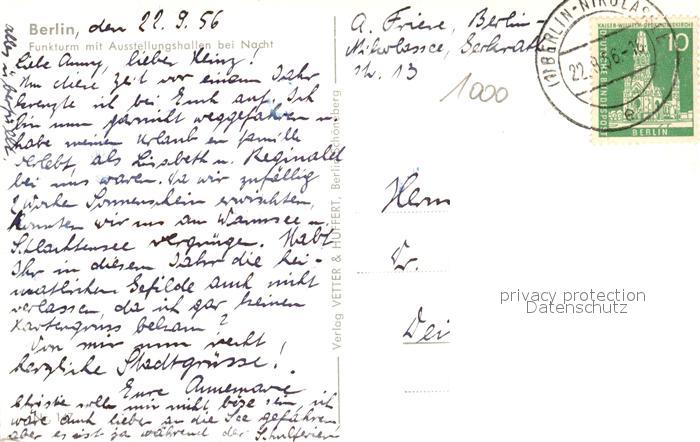 Berlin, den 22.9.56
Funkturm mit Ausstellungshallen bei Nacht
Liebe Anny, lieber Heinz!
Um diese Zeit vor einem Jahr
kreuzte ich bei Euch auf. Ich
bin nun garnicht weggefahren u.
habe meinen Urlaub en famille
verlebt, als Lisbeth u. Reginald
bei uns waren. Da wir zufällig
2 Woche Sonnenschein erwischten,
konnten wir uns am Wannsee u.
Schlachtensee vergnügen. Habt
Ihr in diesem Jahr die hei-
matlichen Gefilde auch nicht
verlassen, da ich gar keinen
Kartengruss bekam?
Von mir nun recht
herzliche Stadtgrüsse!
Eure Annemarie
mir nicht böse sein, ich
wäre auch lieber an die See gefahren
aber es ist ja während der Schulferien
Verlag VETTER & HÖFFERT, Berlin-Schöneberg
A. Friese, Berlin-
Nikolassee,
str. 13
1000
BERLIN-NIKOLASSEE
22.9.56
e
KAISER-WILHELM-GEDÄCHTNISKIRCHE
10
DEUTSCHE BUNDESPOST
BERLIN
Herrn
Dr.
Dei
privacy protection
Datenschutz